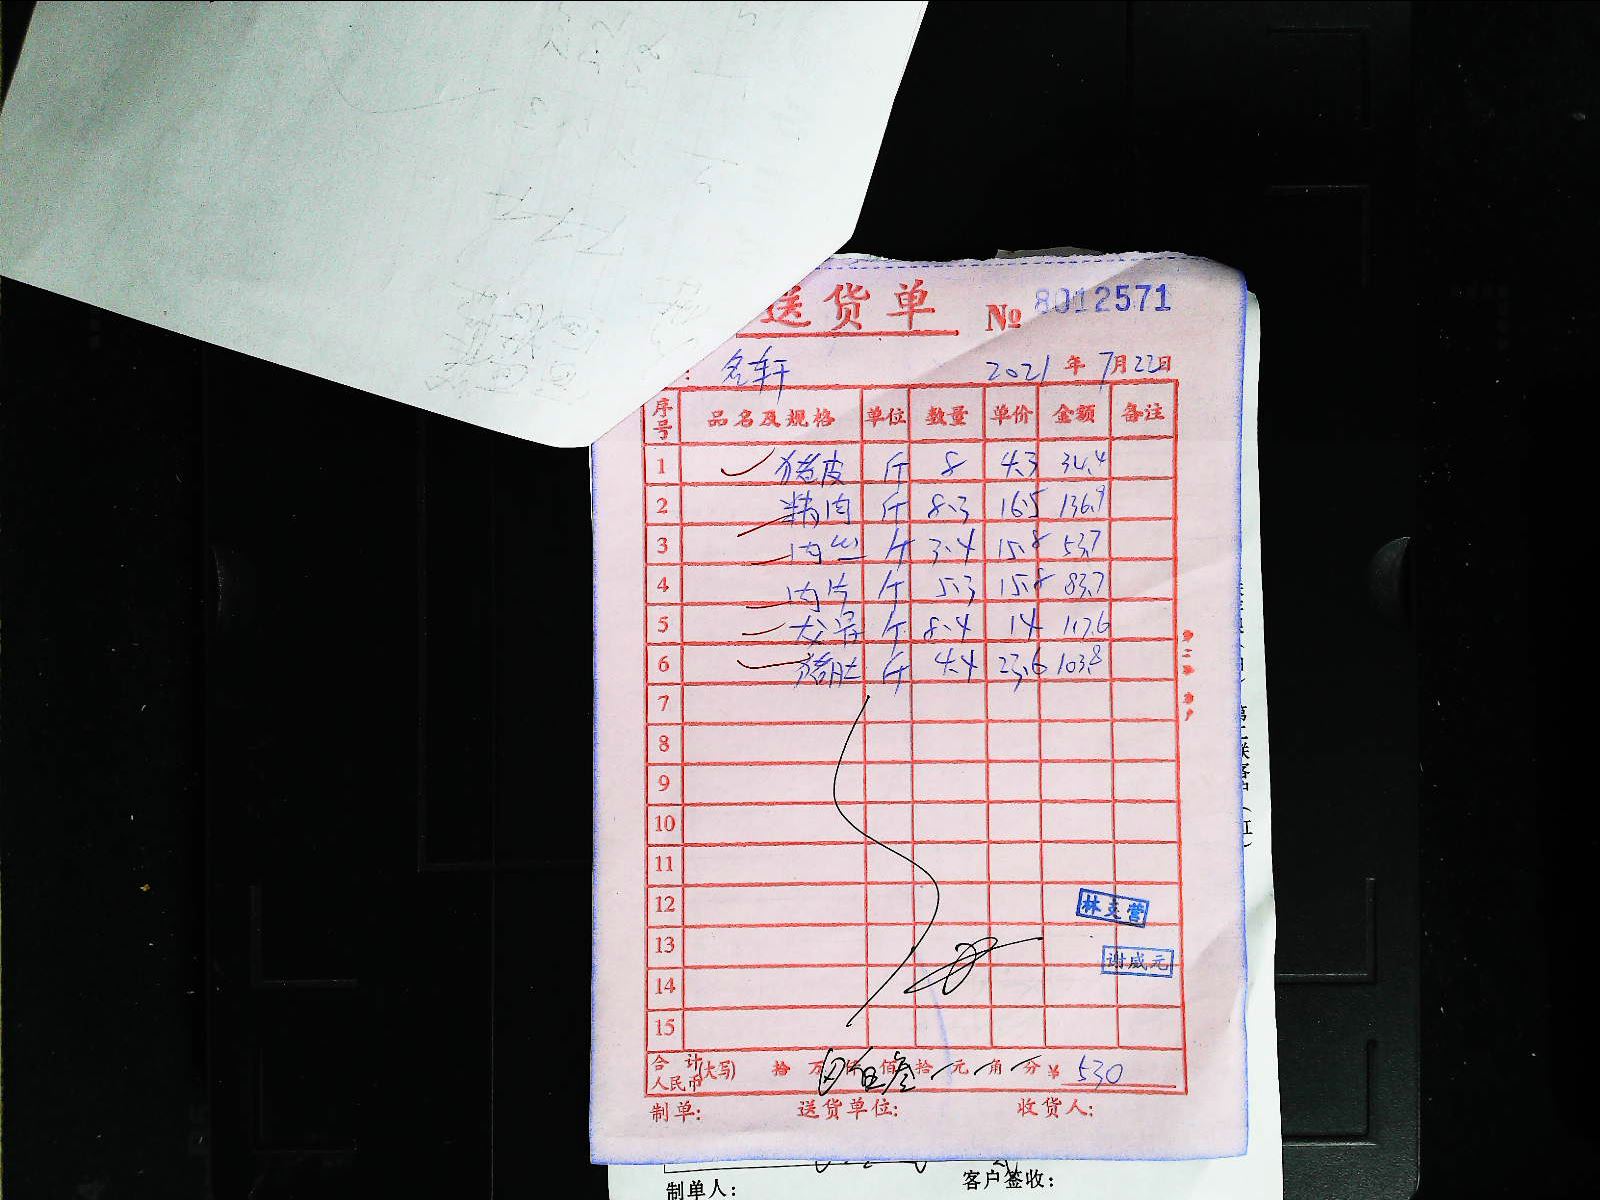 送货单 № 8012571
: 名轩 2021年7月22日
序号 品名及规格 单位 数量 单价 金额 备注
1 猪皮 斤 8 4.3 34.4
2 精肉 斤 8.3 16.5 136.9
3 肉丝 斤 3.4 15.8 53.7
4 肉片 斤 5.3 15.8 83.7
5 斤 8.4 14 117.6
6 猪肚 斤 4.4 23.6 103.8
7
8
9
10
11
12
林 营
13
谢威元
14
15
合计人民币(大写) 拾 万 仟 伍佰叁拾 元 角 分 ¥ 530
制单: 送货单位: 收货人:
制单人: 客户签收: